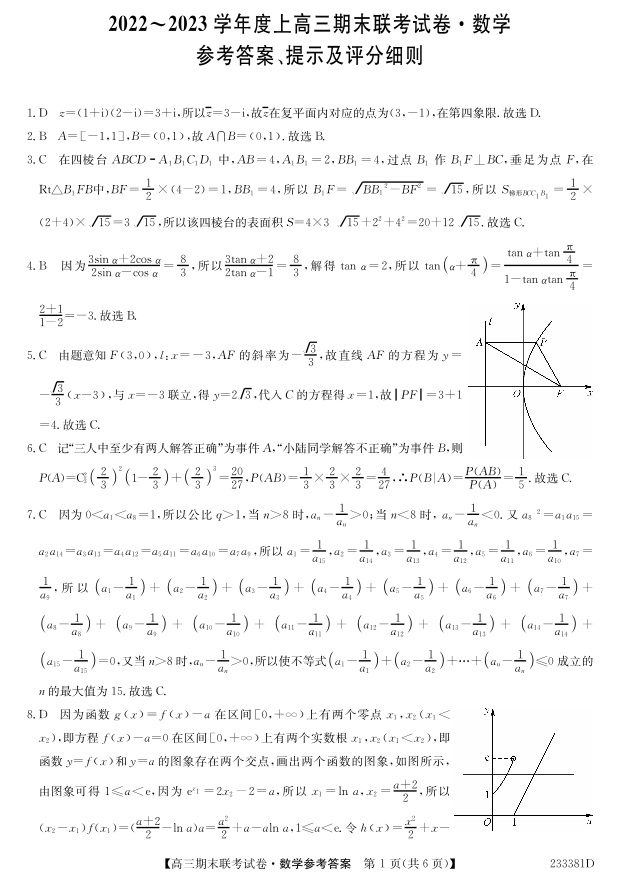 2022～2023 学年度上高三期末联考试卷·数学
参考答案、提示及评分细则
1. D z=(1+i)(2-i)=3+i,所以z̅=3-i,故z̅在复平面内对应的点为(3,-1),在第四象限. 故选 D.
2. B A=[-1,1],B=(0,1),故 A∩B=(0,1). 故选 B.
3. C 在四棱台 ABCD-A₁B₁C₁D₁ 中,AB=4,A₁B₁=2,BB₁=4,过点 B₁ 作 B₁F⊥BC,垂足为点 F,在
Rt△B₁FB中,BF=1/2×(4-2)=1,BB₁=4,所以 B₁F=√(BB₁²-BF²)=√15,所以 S梯形BCC₁B₁=1/2×
(2+4)×√15=3√15,所以该四棱台的表面积 S=4×3 √15+2²+4²=20+12√15. 故选 C.
4. B 因为(3sin α+2cos α)/(2sin α-cos α)=8/3,所以(3tan α+2)/(2tan α-1)=8/3,解得 tan α=2,所以 tan(α+π/4)=(tan α+tan π/4)/(1-tan αtan π/4)=
(2+1)/(1-2)=-3. 故选 B.
5. C 由题意知 F(3,0),l:x=-3,AF 的斜率为-√3/3,故直线 AF 的方程为 y=
-√3/3(x-3),与 x=-3 联立,得 y=2√3,代入 C 的方程得 x=1,故|PF|=3+1
=4. 故选 C.
y
l
A
P
O
F
x
6. C 记“三人中至少有两人解答正确”为事件 A,“小陆同学解答不正确”为事件 B,则
P(A)=C₃²(2/3)²(1-2/3)+(2/3)³=20/27,P(AB)=1/3×2/3×2/3=4/27,∴P(B|A)=P(AB)/P(A)=1/5. 故选 C.
7. C 因为 0<a₁<a₈=1,所以公比 q>1,当 n>8 时,aₙ-1/aₙ>0;当 n<8 时, aₙ-1/aₙ<0. 又 a₈ ²=a₁a₁₅=
a₂a₁₄=a₃a₁₃=a₄a₁₂=a₅a₁₁=a₆a₁₀=a₇a₉,所以 a₁=1/a₁₅,a₂=1/a₁₄,a₃=1/a₁₃,a₄=1/a₁₂,a₅=1/a₁₁,a₆=1/a₁₀,a₇=
1/a₉,所以 (a₁-1/a₁)+(a₂-1/a₂)+(a₃-1/a₃)+(a₄-1/a₄)+(a₅-1/a₅)+(a₆-1/a₆)+(a₇-1/a₇)+
(a₈-1/a₈)+(a₉-1/a₉)+(a₁₀-1/a₁₀)+(a₁₁-1/a₁₁)+(a₁₂-1/a₁₂)+(a₁₃-1/a₁₃)+(a₁₄-1/a₁₄)+
(a₁₅-1/a₁₅)=0,又当 n>8 时,aₙ-1/aₙ>0,所以使不等式(a₁-1/a₁)+(a₂-1/a₂)+…+(aₙ-1/aₙ)≤0 成立的
n 的最大值为 15. 故选 C.
8. D 因为函数 g(x)=f(x)-a 在区间[0,+∞)上有两个零点 x₁,x₂(x₁<
x₂),即方程 f(x)-a=0 在区间[0,+∞)上有两个实数根 x₁,x₂(x₁<x₂),即
函数 y=f(x)和 y=a 的图象存在两个交点,画出两个函数的图象,如图所示,
由图象可得 1≤a<e,因为 e^x₁=2x₂-2=a,所以 x₁=ln a,x₂=(a+2)/2,所以
(x₂-x₁)f(x₁)=((a+2)/2-ln a)a=a²/2+a-aln a,1≤a<e. 令 h(x)=x²/2+x-
y
e
1
O
1
x
【高三期末联考试卷·数学参考答案 第 1 页(共 6 页)】
233381D